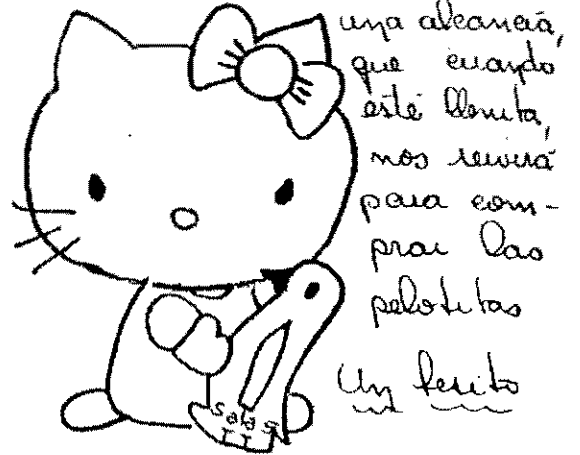 una alcancía,
que cuando
esté llenita,
nos servirá
para com-
prar las
pelotitas
Un besito
Sala 5
II